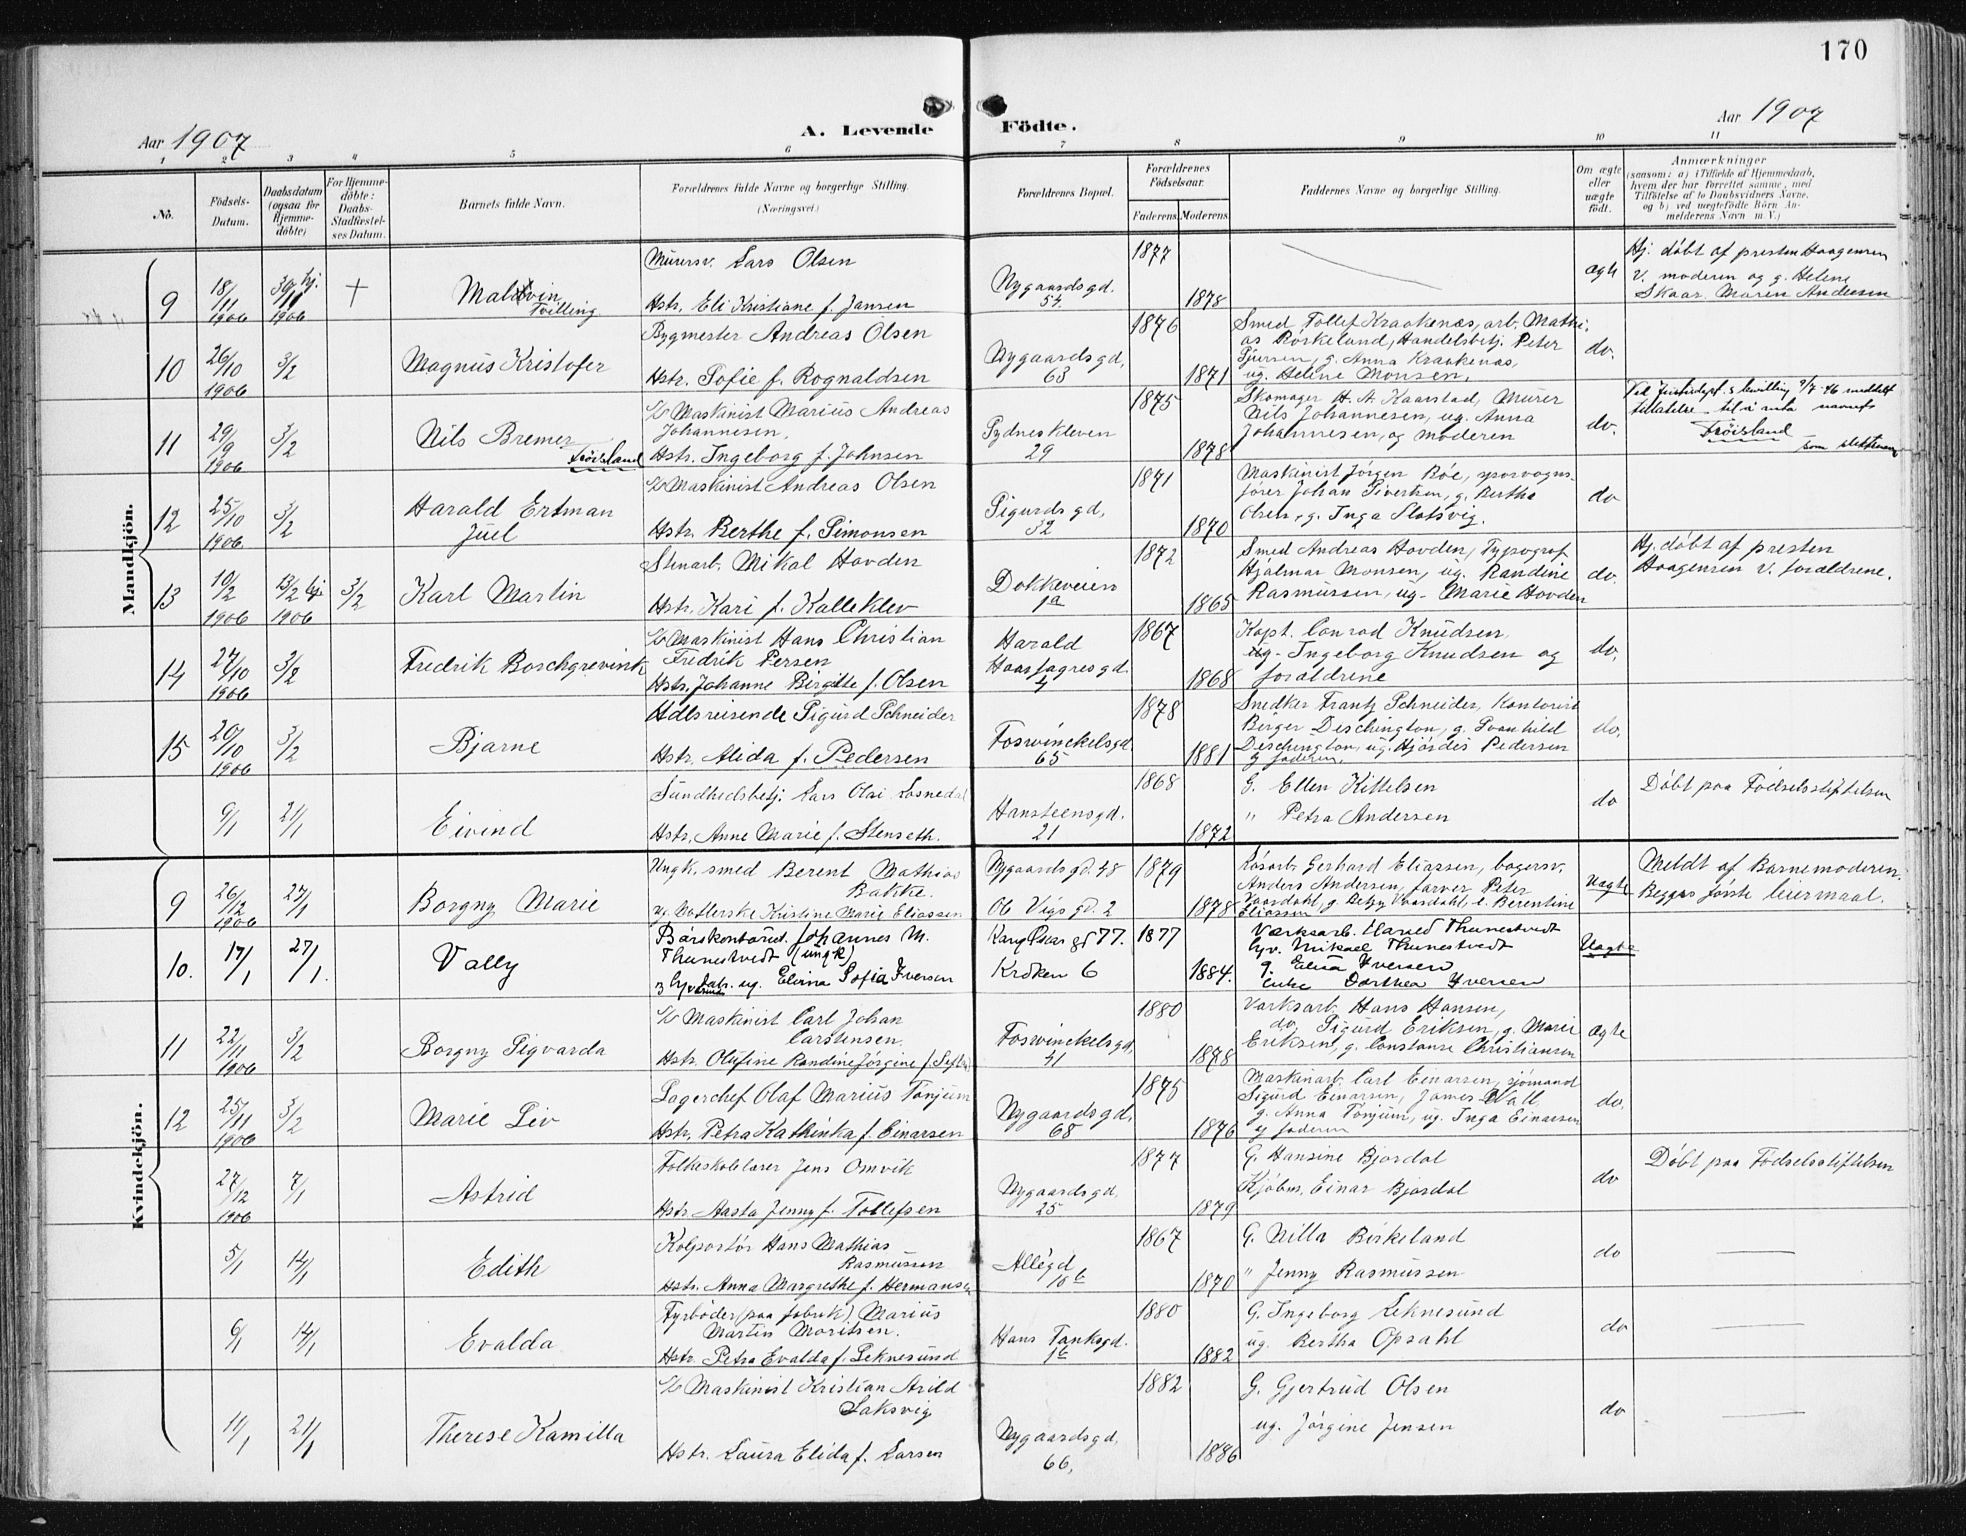 170
Aar 1907
A. Levende Födte.
Aar 1907
1 2 3 4 5 6 7 8 9 10 11
No.
Födsels-
Datum.
Daabsdatum
(ogsaa for
Hjemme-
döbte)
For Hjemme-
döbte:
Daabs-
Stadfæstel-
ses Datum.
Barnets fulde Navn.
Forældrenes fulde Navne og borgerlige Stilling.
(Næringsvei.)
Forældrenes Bopæl.
Forældrenes
Födselsaar.
Faderens Moderens
Faddernes Navne og borgerlige Stilling.
Om ægte
eller
uægte
födt.
Anmærkninger
(saasom: a) i Tilfælde af Hjemmedaab,
hvem der har forrettet samme, med
Tilföielse af to Daabsvidners Navne,
og b) ved uægtefödte Börn An-
melderens Navn m. V.)
Mandkjön.
9
18/11 1906
30/11 hj. 1906
+
Malvin
Tvilling
Murersv. Lars Olsen
Hstr. Eli Kristiane f. Jansen
Nygaardsgd.
54
1877
1878
ægte
Hj. döbt af presten Haagensen
v. moderen og g. Helene
Skaar, Maren Andersen
10
26/10 1906
3/2
Magnus Kristofer
Bygmester Andreas Olsen
Hstr. Sofie f. Rognaldsen
Nygaardsgd.
63
1876
1871
Smed Tollef Kraakenæs, arb. Mathi-
as Röskeland, Handelsbetj. Peter
g. Anna Kraakenæs,
ug. Helene Monsen.
do.
11
29/9 1906
3/2
Nils Bremer
Fröisland
Maskinist Marius Andreas
Johannesen.
Hstr. Ingeborg f. Johnsen
Sydneskleven
29
1875
1878
Skomager H. A. Kaarstad, Murer
Nils Johannesen, ug. Anna
Johannesen, og moderen
do.
tillatelse til å anta navnet
Fröisland
som slektsnavn
12
25/10 1906
3/2
Harald Ertman
Juel
Maskinist Andreas Olsen
Hstr. Berthe f. Simonsen
Sigurdsgd.
32
1871
1870
Maskinist Jörgen Böe, sporvogns-
förer Johan Siversen, g. Bertha
Olsen, g. Inga Slotsvig.
do
13
10/2 1906
13/2 hj. 1906
3/2
Karl Martin
Stenarb. Mikal Hovden
Hstr. Kari f. Kalleklev
Dokkeveien
1a
1872
1865
Smed Andreas Hovden, Typograf
Hjalmar Monsen, ug. Randine
Rasmussen, ug. Marie Hovden
do.
Hj. döbt af presten
Haagensen v. forældrene.
14
27/10 1906
3/2
Fredrik Borchgrevink
Maskinist Hans Christian
Fredrik Persen
Hstr. Johanne Birgitte f. Olsen
Harald
Haarfagresgd.
4
1867
1868
Kapt. Conrad Knudsen,
Ingeborg Knudsen og
forældrene
do.
15
20/10 1906
3/2
Bjarne
Hdlsreisende Sigurd Schneider
Hstr. Alida f. Pedersen
Foswinckelsgd.
65
1878
1881
Snedker Frantz Schneider, Kontorist
Birger Deschington, g. Svanhild
Deschington, ug. Hjördis Pedersen
og faderen.
do.
6/1
21/1
Eivind
Sundhedsbetj. Lars Olai Losnedal
Hstr. Anne Marie f. Stenseth.
Hansteensgd.
21
1868
1872
G. Ellen Kittelsen
" Petra Andersen
do
Döbt paa Födselsstiftelsen
Kvindekjön.
9
26/12 1906
27/1
Borgny Marie
Ungk. smed Berent Mathias
Bakke.
Kristine Marie Eliassen
Nygaardsgd. 48
Ob Vigs gd. 2
1879
1878
Lösarb. Gerhard Eliassen, bagersv.
Anders Andersen, farver Peter
Vaardahl, g. Betzy Vaardahl, e. Berentine
Eliassen
Uægte
Meldt af Barnemoderen.
Begges förste leiermaal.
10.
17/1
27/1.
Vally
Johannes M.
Thunestvedt (ungk)
ug. Elvina Sofia Iversen
Oscarsgd 77.
Kroken 6
1877
1884.
Værksarb. Thunestvedt
Mikael Thunestvedt
g. Elisa Iversen
Enke Dorthea Iversen
Uægte
11
22/11 1906
3/2
Borgny Sigvarda
Maskinist Carl Johan
Carstensen.
Hstr. Olufine Randine Jörgine
Foswinckelsgd.
41
1880
1878
Værksarb. Hans Hansen,
do. Sigurd Eriksen, g. Marie
Eriksen, g. Constanse Christiansen
ægte
12
25/11 1906
3/2
Marie Liv
Lagerchef Olaf Marius Tönjum
Hstr. Petra Kathinka f. Einarsen
Nygaardsgd.
68
1875
1876
Maskinarb. Carl Einarsen, sjömand
Sigurd Einarsen, James Wall
g. Anna Tönjum, ug. Inga Einarsen
og faderen
do.
27/12 1906
7/1
Astrid
Folkeskolelærer Jens Omvik
Hstr. Aasta Jenny f. Tollefsen
Nygaardsgd.
25
1877
1879
G. Hansine Bjordal
Kjöbm. Einar Bjordal
do
Döbt paa Födselsstiftelsen
5/1
14/1
Edith
Kolportör Hans Mathias
Rasmussen
Hstr. Anna Margrethe f. Hermansen
Allégd.
10b
1867
1870
G. Nilla Birkeland
" Jenny Rasmussen
do
6/1
14/1
Evalda
Fyrböder (paa fabrik) Marius
Martin Moritsen.
Hstr. Petra Evalda f. Leknesund
Hans Tanksgd.
1c
1880
1882
G. Ingeborg Leknesund
ug. Bertha Opsahl
do
11/1
21/1
Therese Kamilla
Maskinist Kristian Arild
Laksvig
Hstr. Laura Elida f. Larsen
Nygaardsgd.
66.
1882
1886
G. Gjertrud Olsen
ug. Jörgine Jensen
do